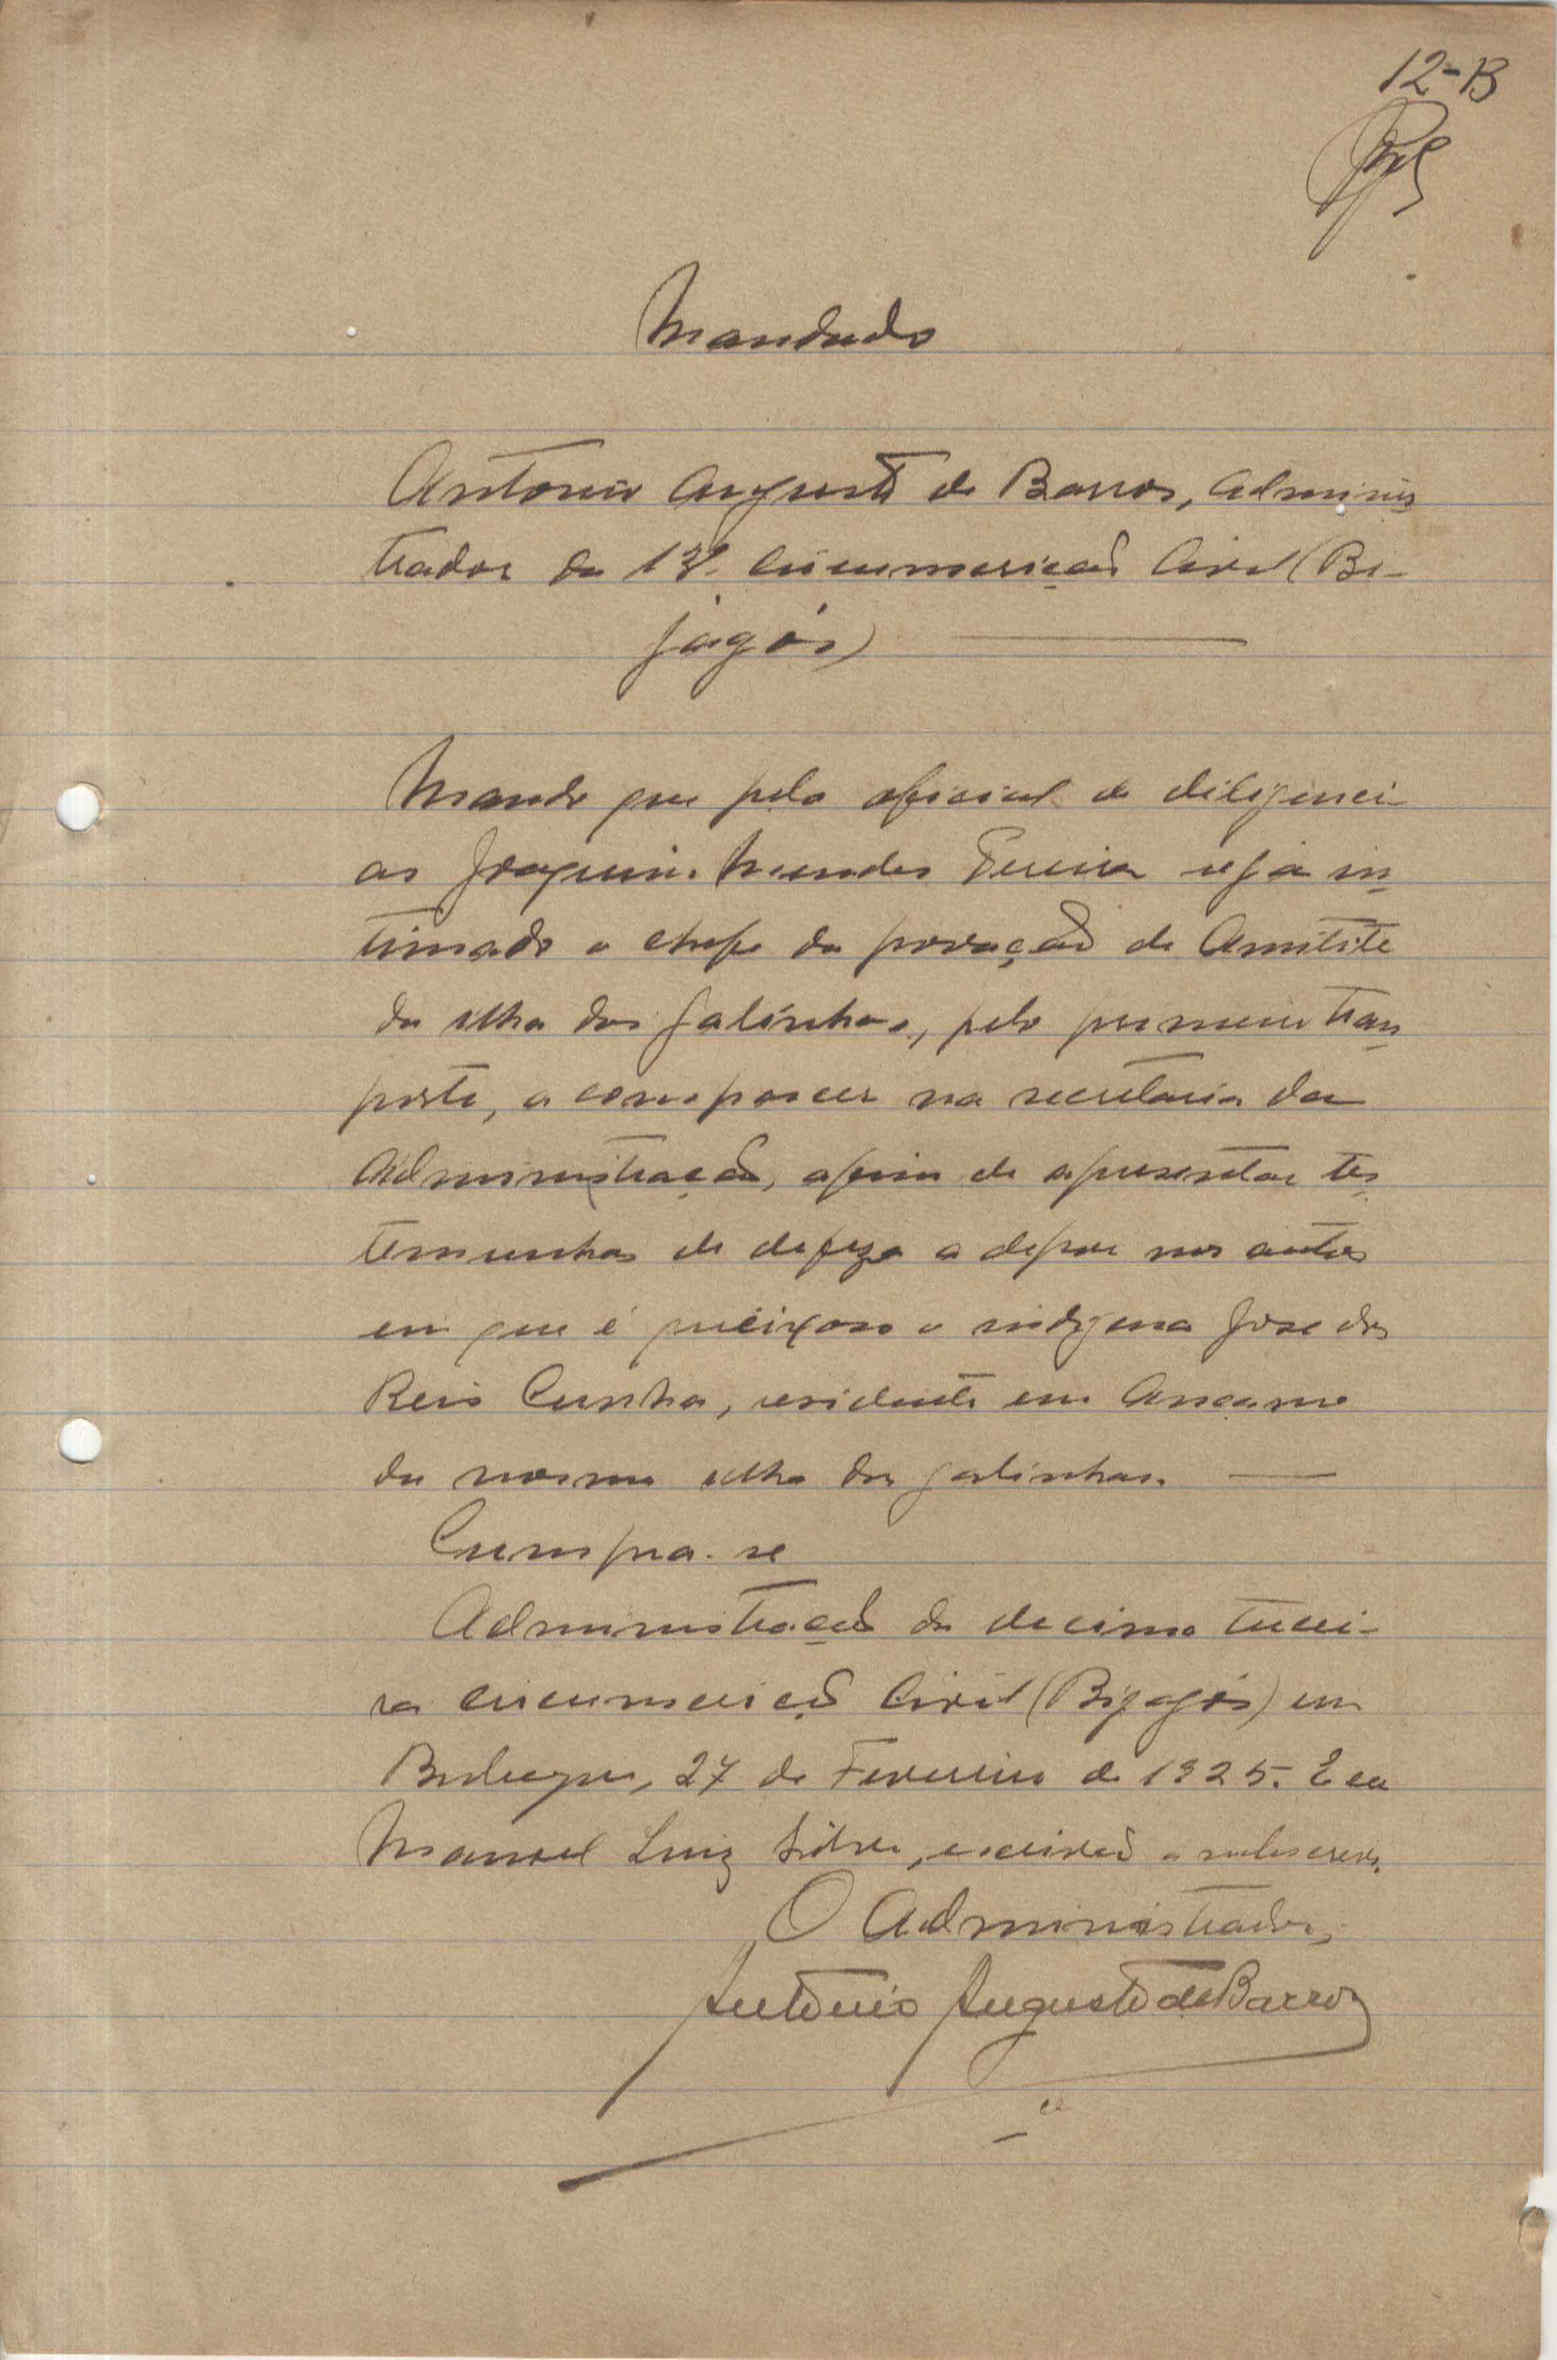 12-B
Mandado
Antonio Augusto de Barros, Adminis
trador da 13ª Circumscrição Civil (Bi-
jagós)
Mando que pelo oficial de diligenci-
as Joaquim Mendes Pereira seja in
timado o chefe da povoação de Amitite
da ilha das Galinhas, pelo primeiro trans
porte, a comparecer na secretaria da
Administração, afim de apresentar tes
temunhas de defeza a depor nos autos
em que é queixoso o indigena José dos
Reis Cunha, residente em Ancamo
da mesma ilha das galinhas.
Cumpra-se
Administração da decima tercei-
ra circumscrição Civil (Bijagós) em
Bubaque, 27 de Fevereiro de 1925. E eu
Manoel Luiz Silva, escrivão o subscrevi.
O Administrador,
Antonio Augusto de Barros